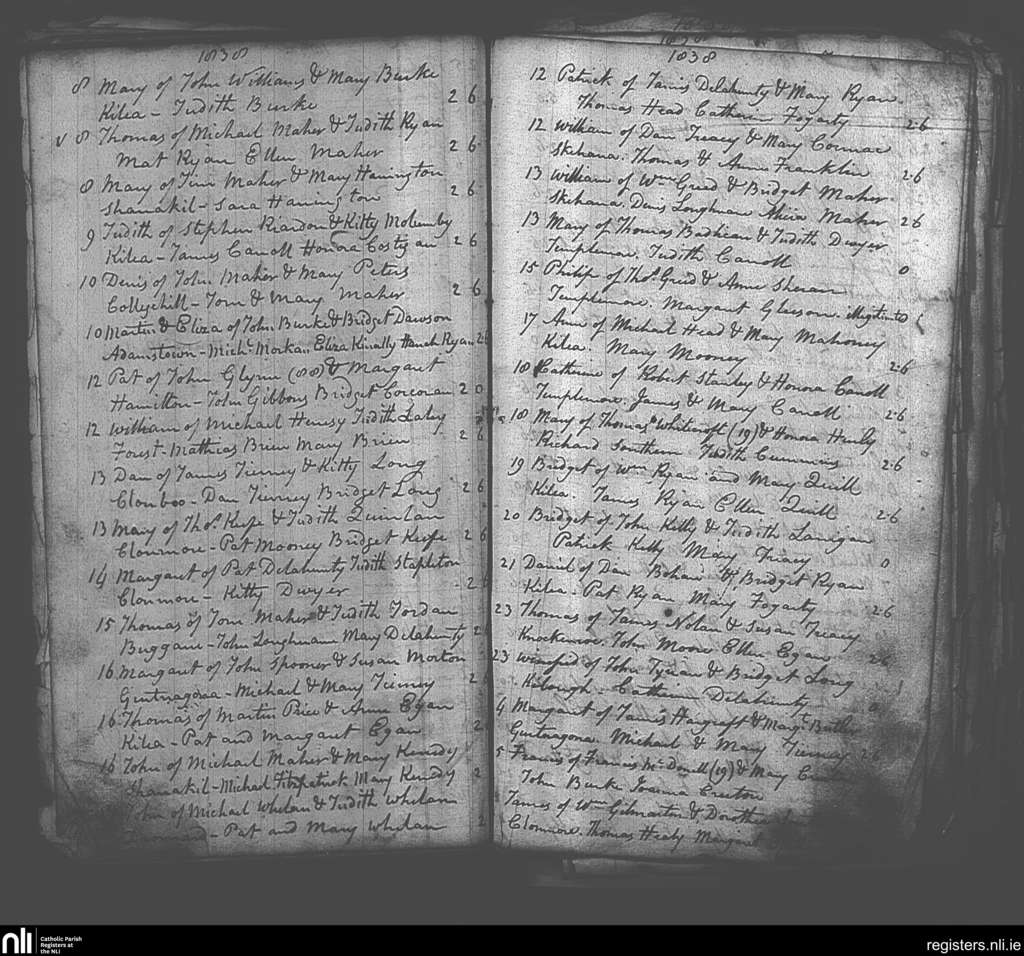 1838
8 Mary of John Williams & Mary Burke
Kilea - Judith Burke 2 6
v 8 Thomas of Michael Maher & Judith Ryan
Mat Ryan Ellen Maher 2 6
8 Mary of Tim Maher & Mary Hanington
Shanakil - Sara Hanington 2 6
9 Judith of Stephen Riardon & Kitty Molumby
Kilea - James Carroll Honora Costgan 2 6
10 Denis of John Maher & Mary Peters
Collegehill - Tom & Mary Maher 2 6
10 Martin & Eliza of John Burke & Bridget Dawson
Adamstown - Michl. Morkan Eliza Kinally Hanah Ryan 2 6
12 Pat of John Glynn (88) & Margaret
Hamilton - John Gibbons Bridget Corcoran 2 0
12 William of Michael Henesy Judith Lalay
Forest - Matthias Brien Mary Brien 2 6
13 Dan of James Tierney & Kitty Long
Clonboo - Dan Tierney Bridget Long 2 6
13 Mary of Thos. Keefe & Judith Quinlan
Clonmore - Pat Mooney Bridget Keefe 2 6
14 Margaret of Pat Delahunty Judith Stapleton
Clonmore - Kitty Dwyer 2
15 Thomas of Tom Maher & Judith Jordan
Buggaun - John Loughnane Mary Delahunty 2
16 Margaret of John Spooner & Susan Morton
Gurtnagona - Michael & Mary Tierney 2
16 Thomas of Martin Price & Anne Egan
Kilea - Pat and Margaret Egan 2
16 John of Michael Maher & Mary Kenedy
Shanakil - Michael Fitzpatrick Mary Kenedy 2
John of Michael Whelan & Judith Whelan
- Pat and Mary Whelan 2
1838
12 Patrick of James Delahunty & Mary Ryan
Thomas Head Catherin Fogarty 2 6
12 William of Dan Treacy & Mary Cormac
Skehana. Thomas & Anne Franklin 2 6
13 William of Wm. Greed & Bridget Maher
Skehana. Denis Loughnane Maher 2 6
13 Mary of Thomas & Judith Dwyer
Templemore. Judith Carroll 0
15 Philip of Thos. Greed & Anne
Templemore. Margaret Gleeson.
17 Anne of Michael Head & Mary Mahoney
Kilea. Mary Mooney 2 6
18 Catherine of Robert Stanley & Honora Carroll
Templemore. James & Mary Carroll 2 6
18 Mary of Thomas Whitcroft (19) & Honora Henly
Richard Southern Judith Cummins 2 6
19 Bridget of Wm Ryan and Mary Quill
Kilea. James Ryan Ellen Quill 2 6
20 Bridget of John Kelly & Judith Lanigan
Patrick Kelly Mary Treacy 0
21 Daniel of Dan Bohan & Bridget Ryan
Kilea - Pat Ryan Mary Fogarty 2 6
23 Thomas of James Nolan & Susan Treacy
Knockanroe. John Moore Ellen Egan 2 6
23 Winefred of John & Bridget Long
Kilough - Catherin Delahunty 0
4 Margaret of James Haycroft & Margt. Butler
Gurtnagona. Michael & Mary Tierney 2 6
5 Francis of Francis McDonell (19) & Mary
John Burke Joanna
James of Wm Gilmartin & Dorothea
Clonmore. Thomas Healy Margaret
nli Catholic Parish
Registers at
the NLI
registers.nli.ie